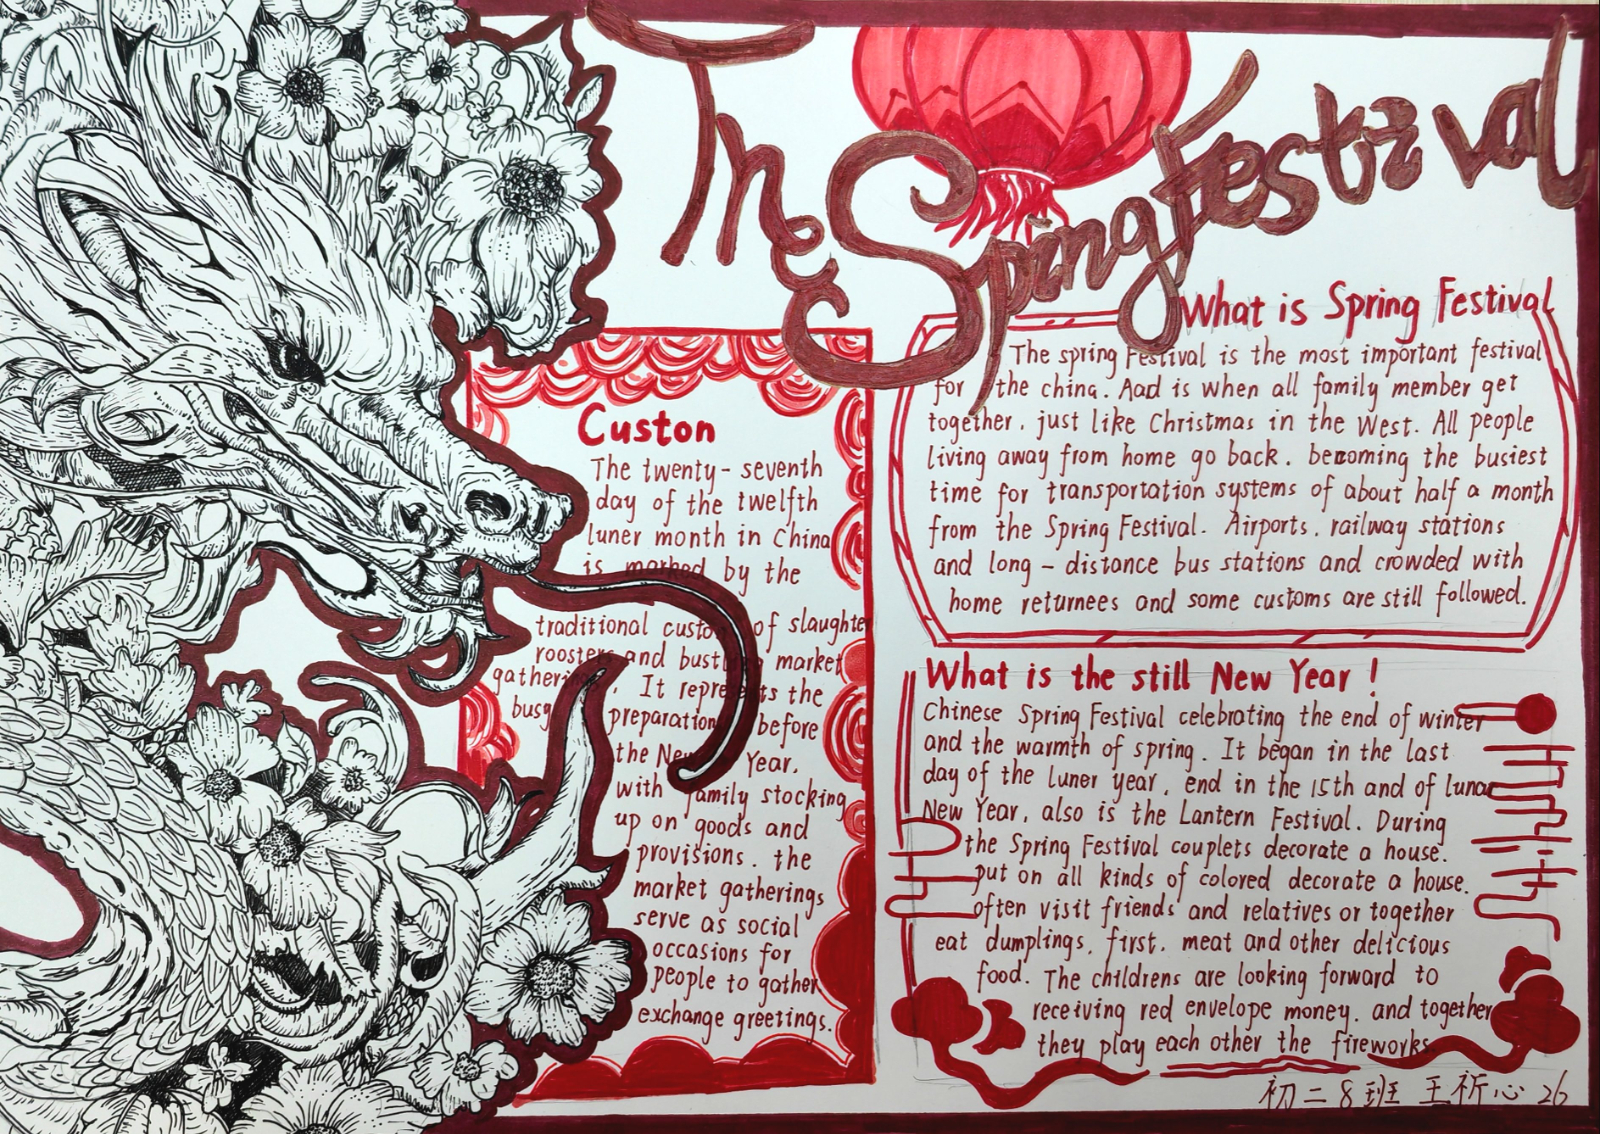 The Spring Festival
What is Spring Festival
The spring Festival is the most important festival
for the china. Aad is when all family member get
together, just like Christmas in the West. All people
living away from home go back. becoming the busiest
time for transportation systems of about half a month
from the Spring Festival. Airports, railway stations
and long - distance bus stations and crowded with
home returnees and some customs are still followed.
Custon
The twenty - seventh
day of the twelfth
luner month in China
is marked by the
traditional custo of slaughter
roosters and bustling market
gathering. It represents the
busy preparation before
the New Year,
with family stocking
up on goods and
provisions. the
market gatherings
serve as social
occasions for
people to gather
exchange greetings.
What is the still New Year !
Chinese Spring Festival celebrating the end of winter
and the warmth of spring. It began in the last
day of the luner year, end in the 15th and of lunar
New Year, also is the Lantern Festival. During
the Spring Festival couplets decorate a house.
put on all kinds of colored decorate a house.
often visit friends and relatives or together
eat dumplings, first, meat and other delicious
food. The childrens are looking forward to
receiving red envelope money, and together
they play each other the fireworks.
初二8班 王祈心 26